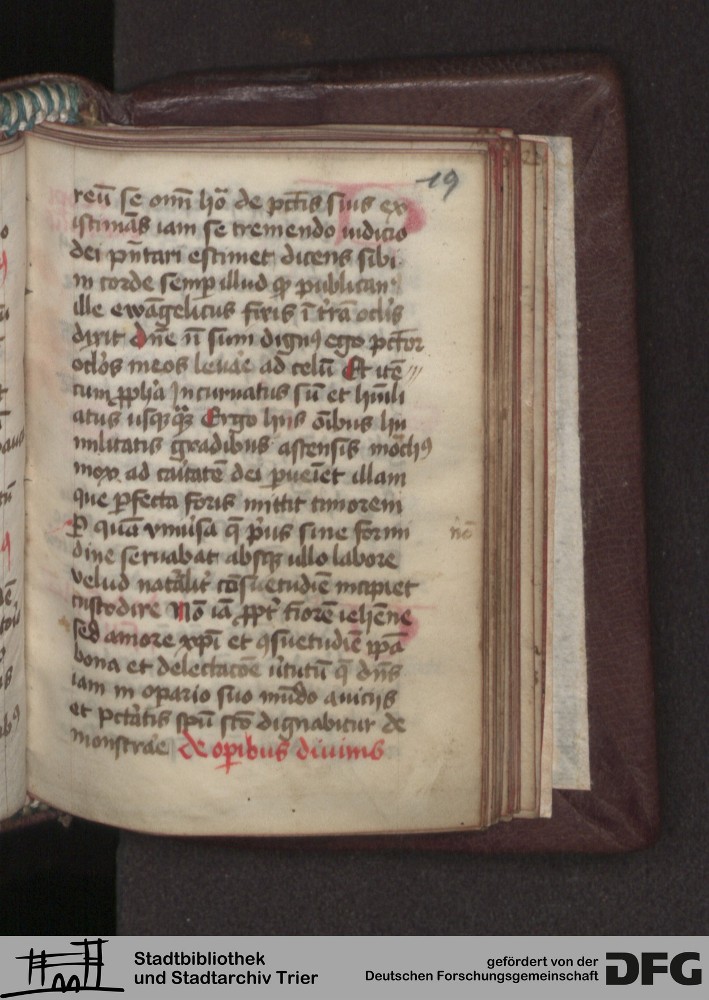 19
reū se om̄i hōa de pctīs suis ex
istimās iam se tremendo iudicio
dei pn̄tari estimet dicens sibi
in corde semp illud qp publican9
ille ewāgelicus fixis ī trā oclis
dixit dn̄e nō sum dign9 ego pctor
oclōs meos leuāe ad celū Et itē
cum pphā Incurvatus sū et humili
atus usqqȝ Ergo hiis oībus hu
militatis gradibus ascensis mōch9
mox ad caitatē dei pueīet illam
que pfecta foris mittit timorem
P quā vniūsa q̄ pius sine formi
nō
dine seruabat absqȝ ullo labore
velud natālit cōsuetudīe incipiet
custodire Nō iā ppt timorē iehēne
sed amore xpī et 9suetudīe ipā
bona et delectacōe ūtutū q̄ dn̄s
iam in opario suo mūdo a viciis
et pctātis spū sctō dignabitur de
monstrāe de opibus diuinis
Stadtbibliothek
und Stadtarchiv Trier
gefördert von der
Deutschen Forschungsgemeinschaft
DFG